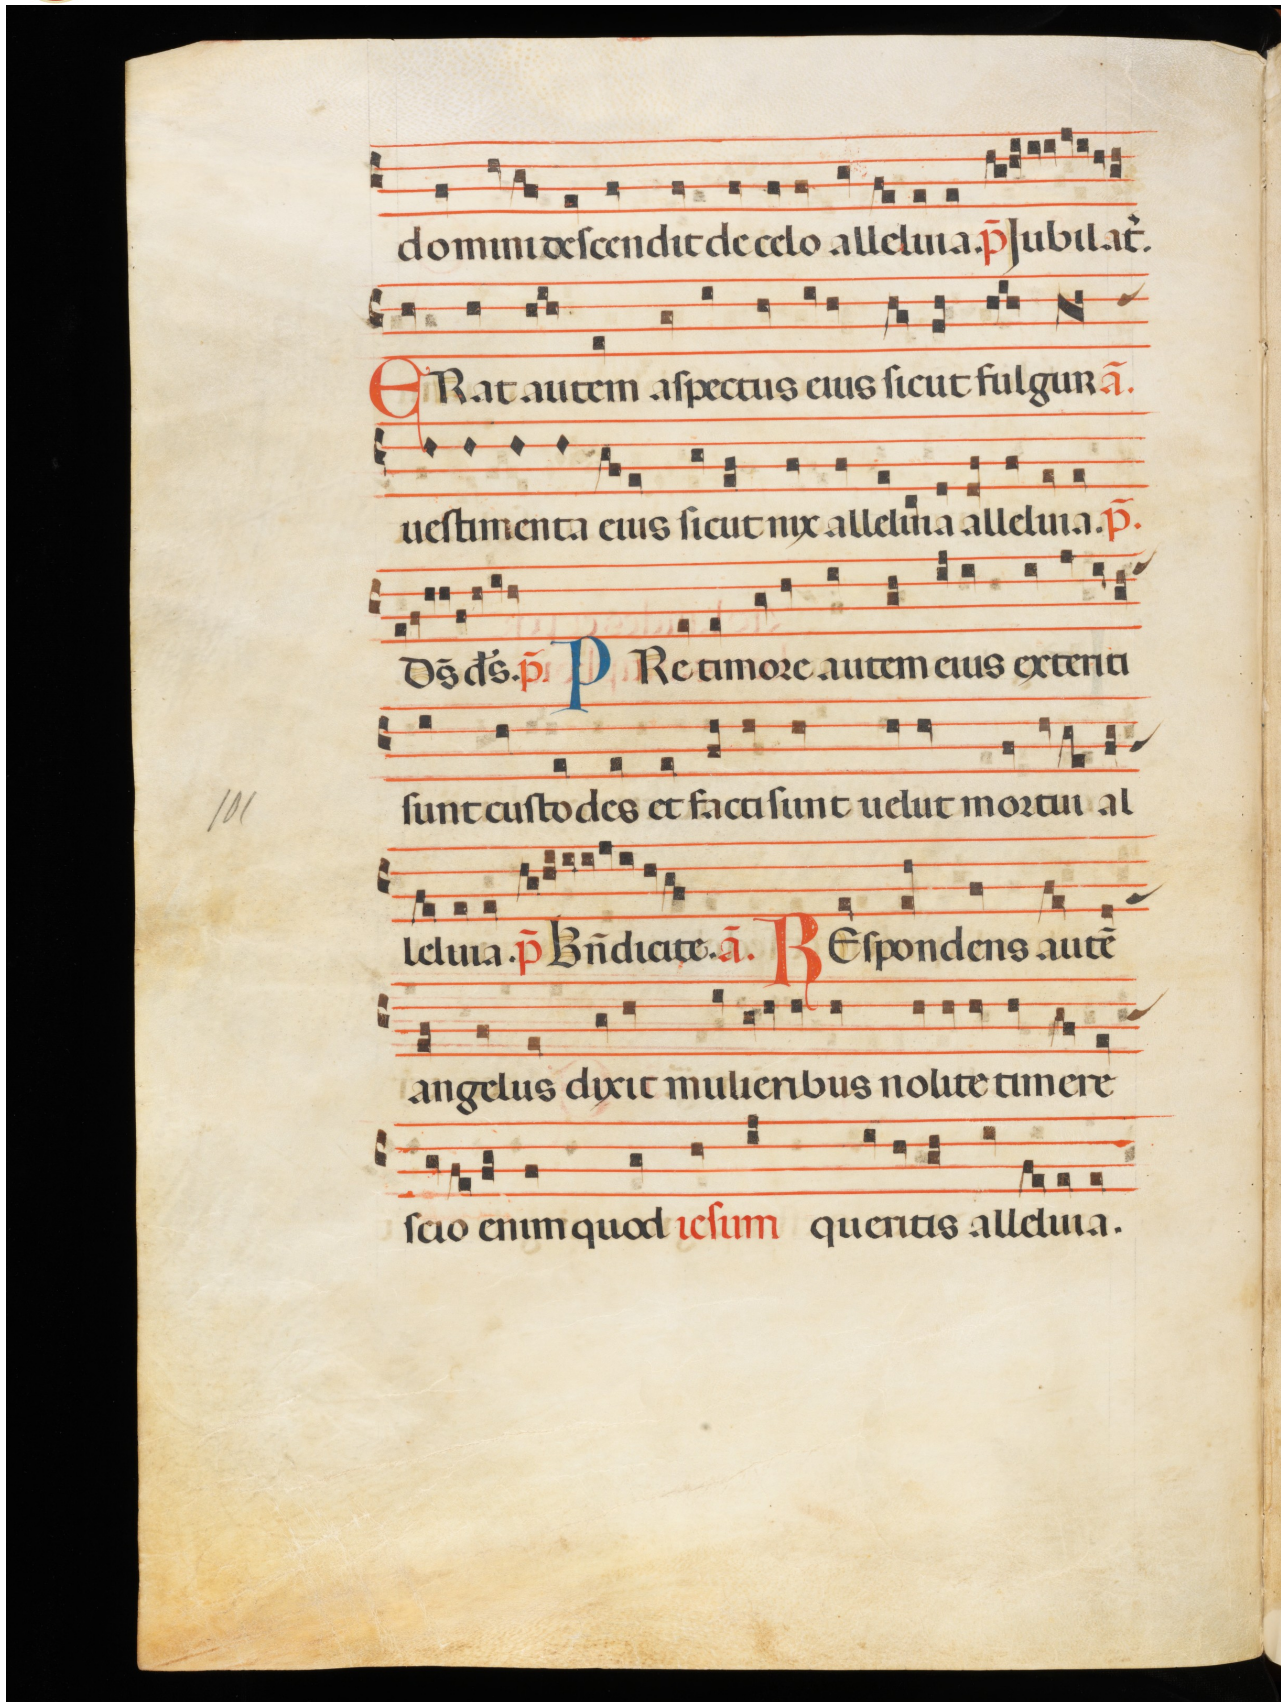 domini descendit de celo alleluia. p̄ Jubilat̉.
ERat autem aspectus eius sicut fulgur ā.
uestimenta eius sicut nix alleluia alleluia. p̄.
Ds̄ ds̄. p̄. PRe timore autem eius exteriti
sunt custodes et facti sunt uelut mortui al
leluia. p̄ Bn̄dicite. ā. REspondens autē
angelus dixit mulieribus nolite timere
101
scio enim quod iesum queritis alleluia.